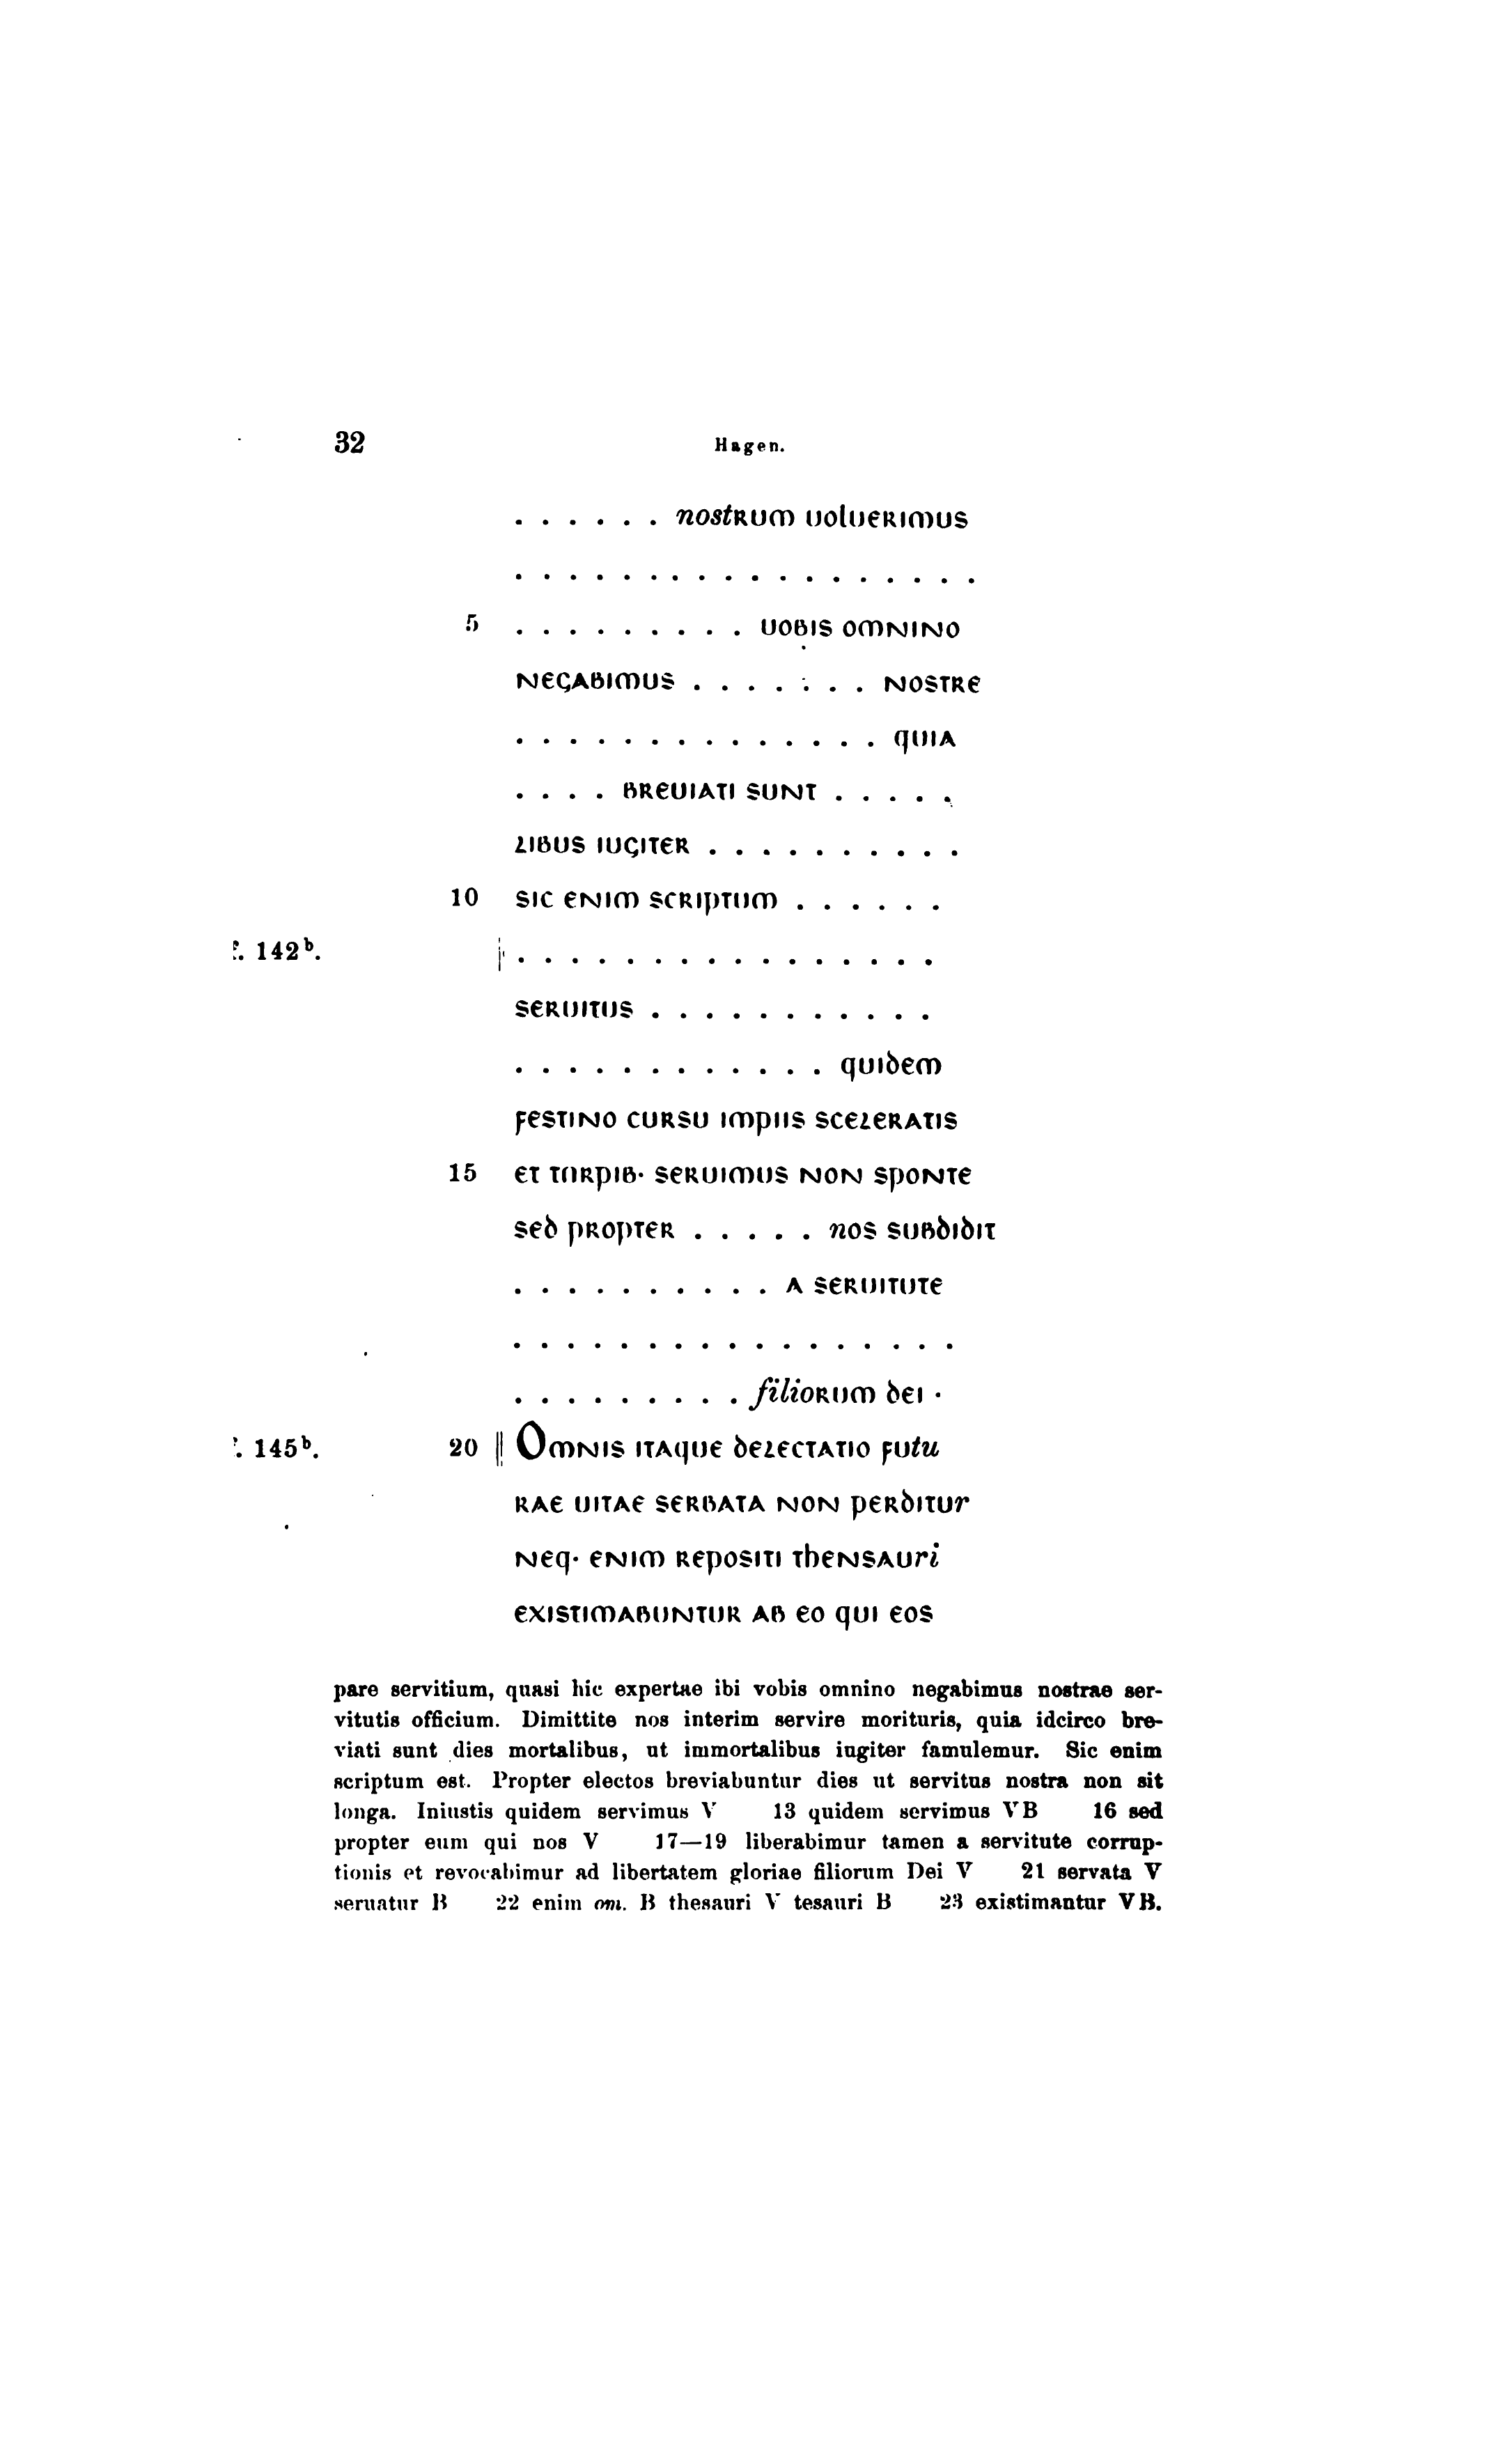 32 Hagen.
. . . . . . nostrum uoluerimus
. . . . . . . . . . . . . . . . . .
5 . . . . . . . . . uobis omnino
negabimus . . . . . . . nostre
. . . . . . . . . . . . . . quia
. . . . breuiati sunt . . . . .
libus iugiter . . . . . . . . . .
10 sic enim scriptum . . . . . .
f. 142b. | . . . . . . . . . . . . . . . .
seruitus . . . . . . . . . . .
. . . . . . . . . . . . quidem
festino cursu impiis sceleratis
15 et turpib· seruimus non sponte
sed propter . . . . . nos subdidit
. . . . . . . . . . a seruitute
. . . . . . . . . . . . . . . . .
. . . . . . . . . filiorum dei ·
f. 145b. 20 || Omnis itaque delectatio futu
rae uitae serbata non perditur
neq· enim repositi thensauri
existimabuntur ab eo qui eos
pare servitium, quasi hic expertae ibi vobis omnino negabimus nostrae ser-
vitutis officium. Dimittite nos interim servire morituris, quia idcirco bre-
viati sunt dies mortalibus, ut immortalibus iugiter famulemur. Sic enim
scriptum est. Propter electos breviabuntur dies ut servitus nostra non sit
longa. Iniustis quidem servimus V 13 quidem servimus VB 16 sed
propter eum qui nos V 17—19 liberabimur tamen a servitute corrup-
tionis et revocabimur ad libertatem gloriae filiorum Dei V 21 servata V
seruatur B 22 enim om. B thesauri V tesauri B 23 existimantur VB.